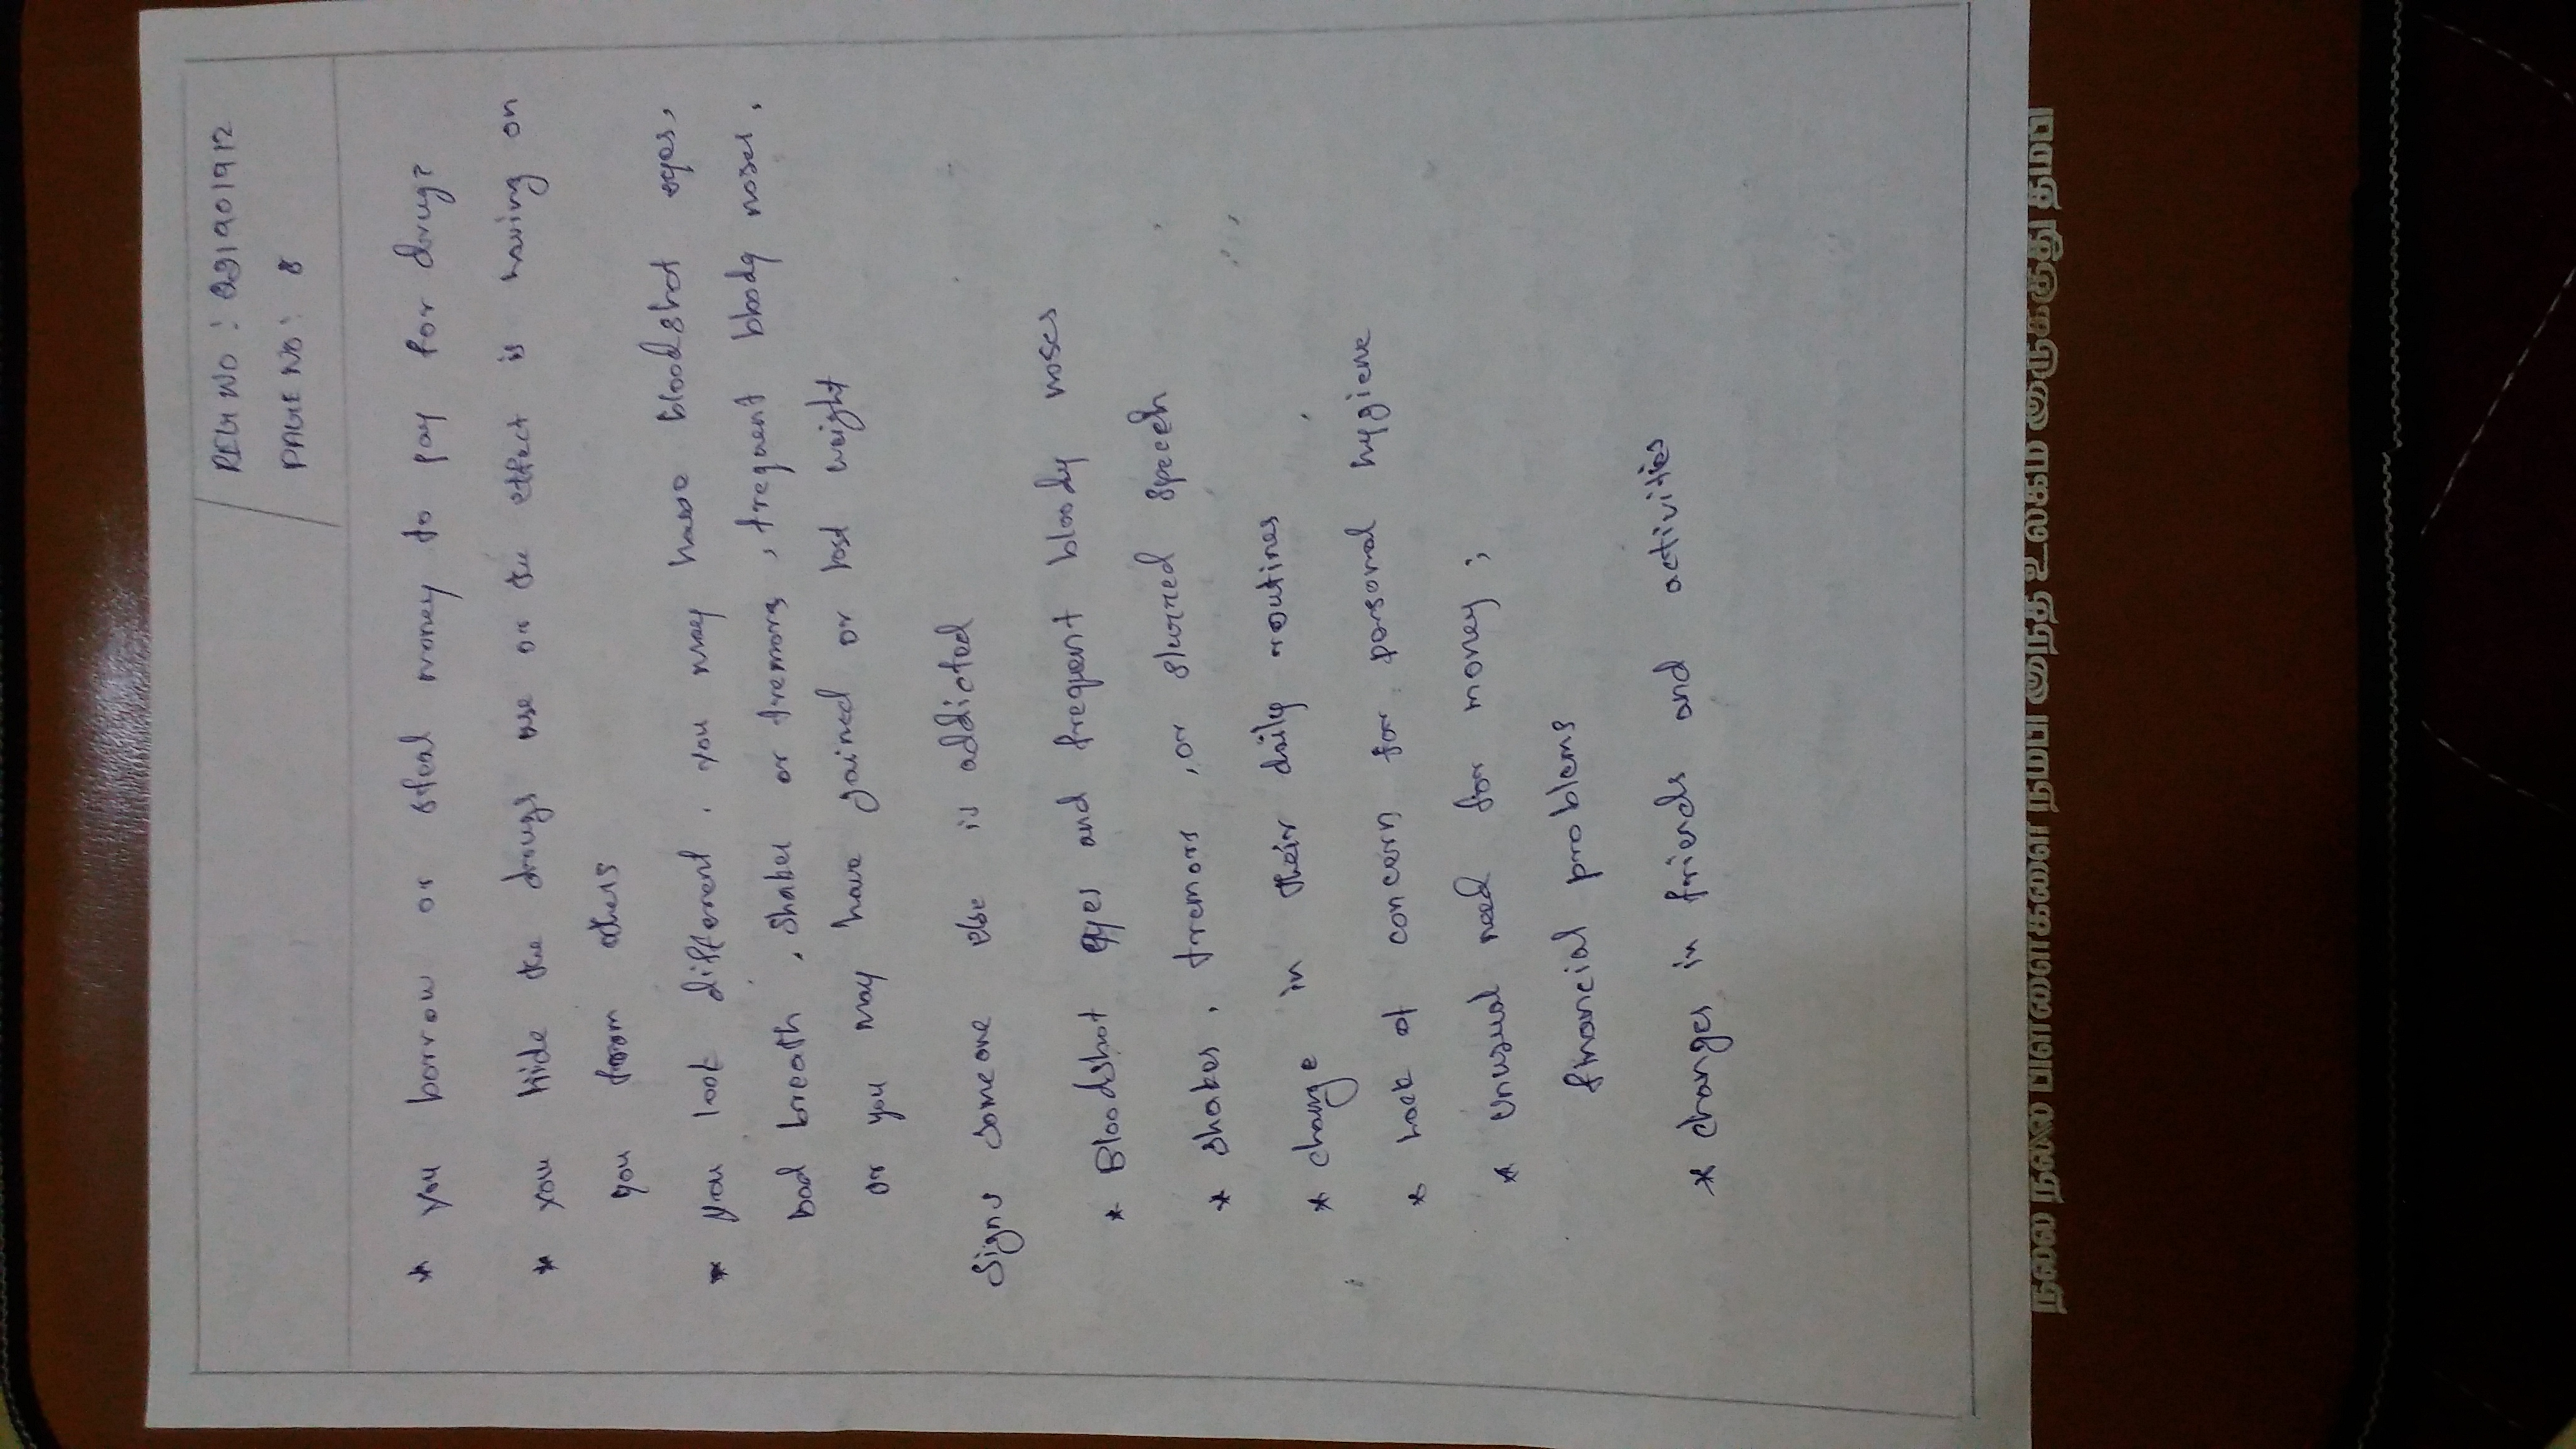 REG NO : 221901912
PAGE NO : 8
* You borrow or steal money to pay for drugs
* You hide the drugs use or the effect is having on
you from others
* You look different. You may have bloodshot eyes,
bad breath, shakes or tremors, frequent bloody noses,
or you may have gained or lost weight
Signs someone else is addicted
* Bloodshot eyes and frequent bloody noses
* shakes, tremors, or slurred speech
* change in their daily routines
* Lack of concern for personal hygiene
* Unusual need for money ;
financial problems
* changes in friends and activities
நல்ல நல்ல பிள்ளைகளை நம்பி இந்த உலகம் இருக்குது தம்பி